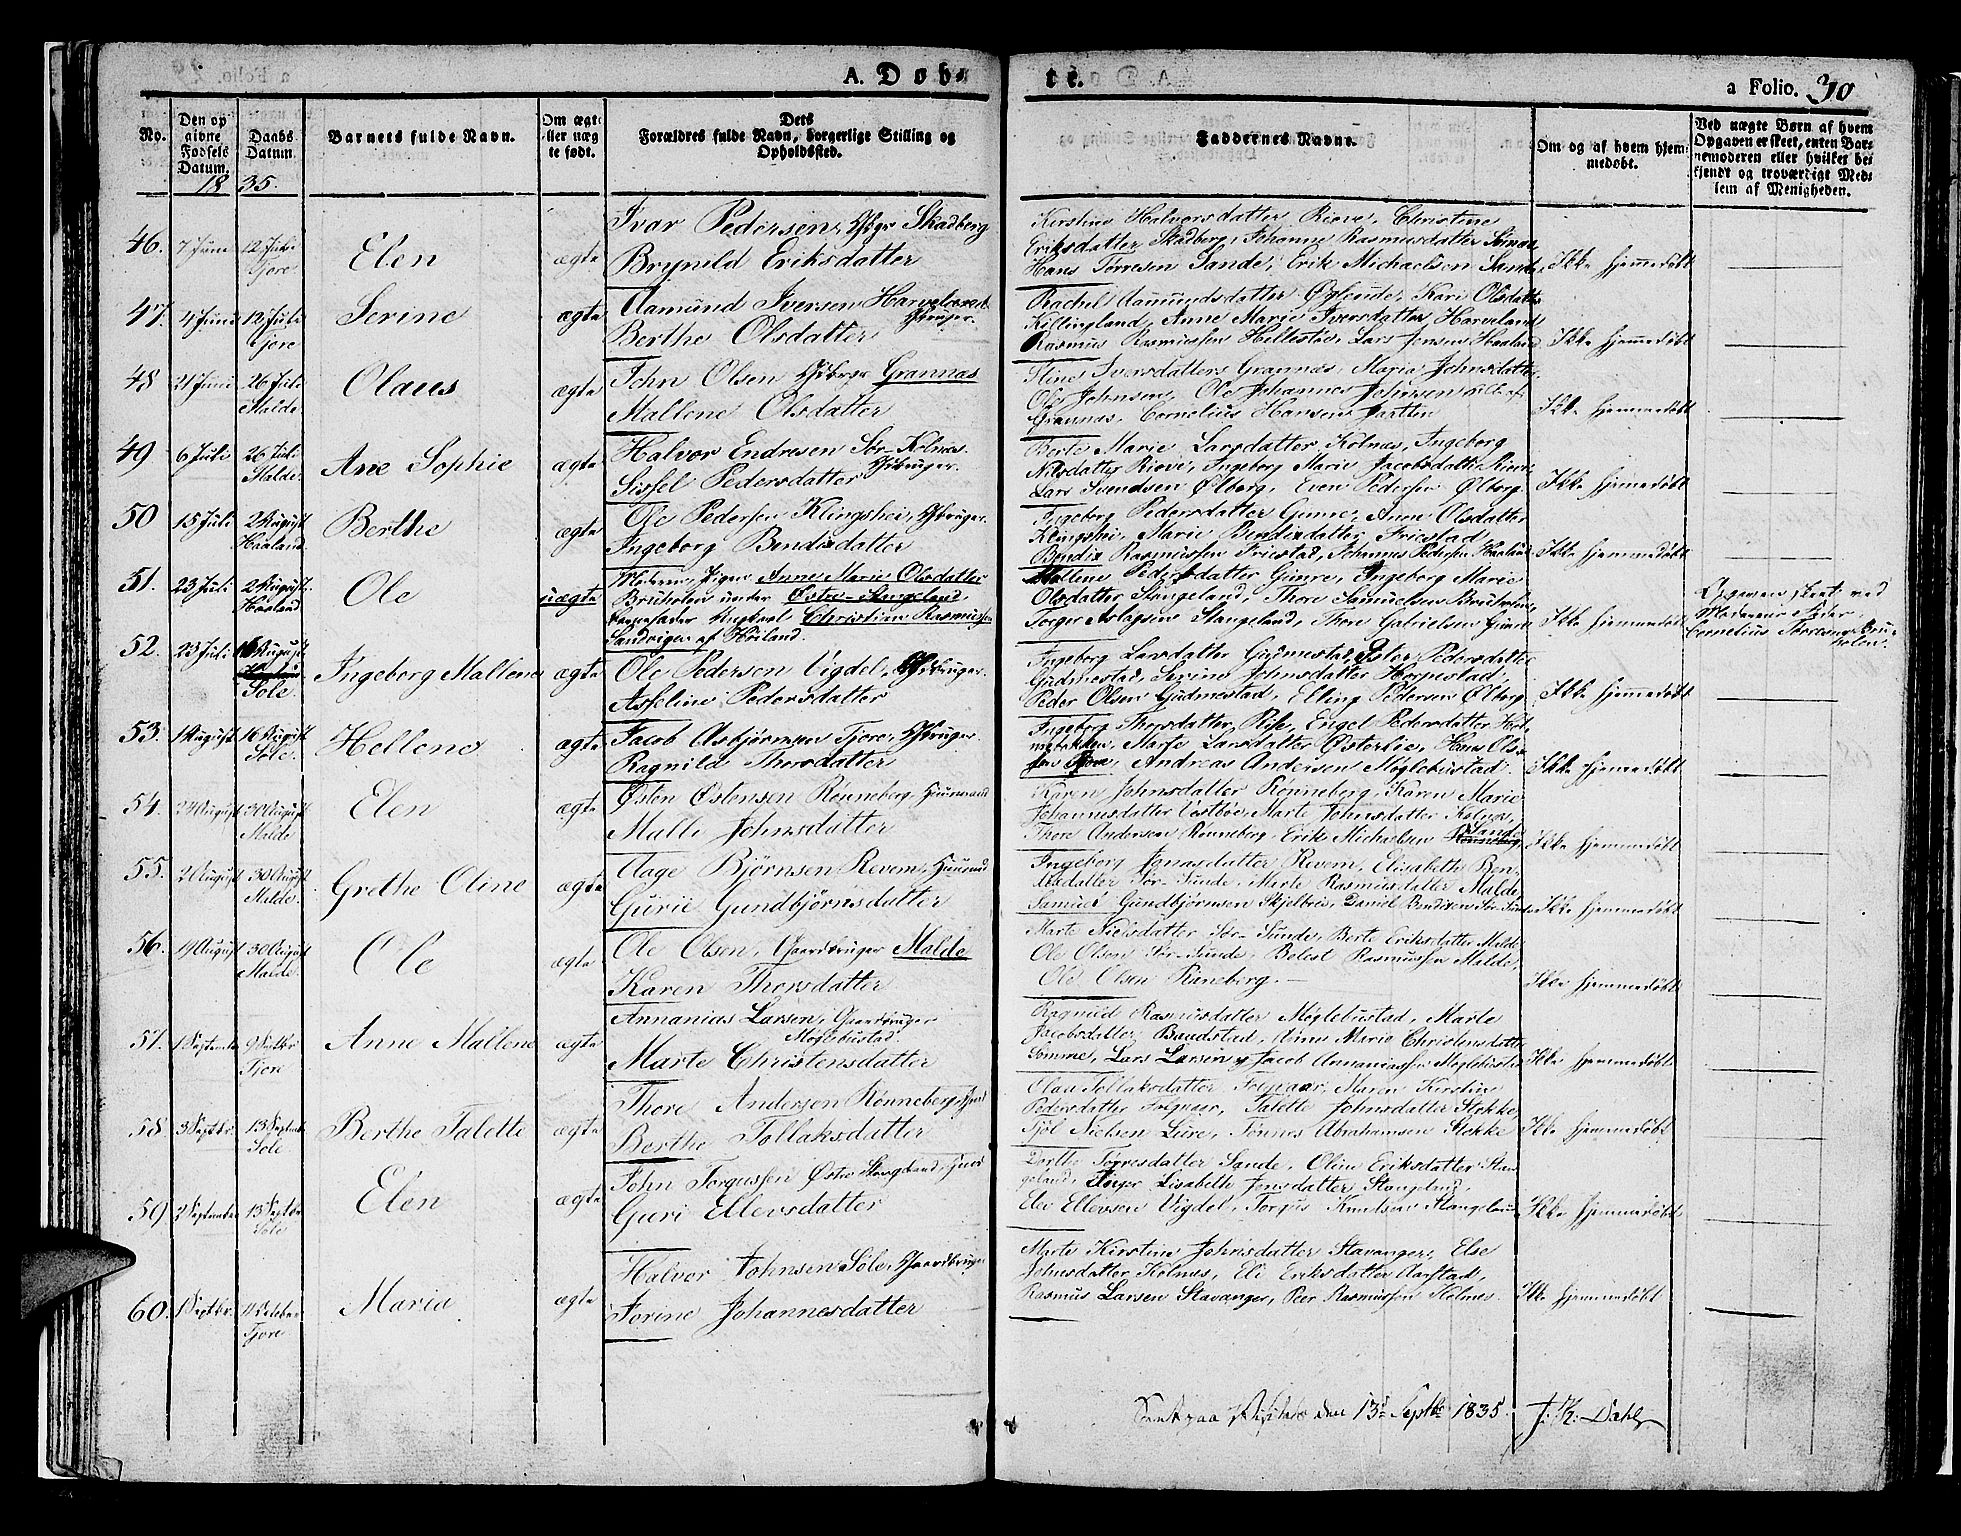 A. Døbte.
a Folio. 30
No.
Den opgivne Fødsels Datum.
Daabs Datum.
Barnets fulde Navn.
Om ægte eller uægte født.
Dets Forældres fulde Navn, borgerlige Stilling og Opholdssted.
Faddernes Navne.
Om og af hvem hjemmedøbt.
Ved uægte Børn af hvem Opgaven er skeet, enten Barnemoderen eller hvilket bekjendt og troværdigt Medlem af Menigheden.
1835.
46. 7 Juni 12 Juli Tjore Elen ægte
Ivar Pedersen, Skadberg
Brynild Eriksdatter
Kirstine Halvorsdatter Risne, Christine
Eriksdatter Skadberg, Johanne Rasmusdatter
Hans Torresen Sande, Erik Michaelsen Sande
Ikke hjemmedøbt
47. 4 Juni 12 Juli Tjore Serine ægte
Aamund Iversen Harveland
Berthe Olsdatter
Rachel Aamundsdatter Øglende, Kari Olsdatter
Killingland, Anne Marie Iversdatter Harveland
Rasmus Rasmussen Hellestø, Lars Jensen Haaland
Ikke hjemmedøbt
48 21 Juni 26 Juli Malde Olaus ægte
John Olsen Grannæs
Mallene Olsdatter
Stine Iversdatter Grannæs, Maria Johnsdatter
Ole Johnsen, Ole Johannes Johnsen alle af
Grannæs, Cornelius Hansen
Ikke hjemmedøbt
49 6 Juli 26 Juli Malde Ane Sophie ægte
Halvor Endresen Sør-Kolnes
Sissel Pedersdatter
Berte Marie Larsdatter Kolnæs, Ingeborg
Nilsdatter, Ingeborg Marie Jacobsdatter
Lars Svendsen Ølberg, Even Pedersen Ølberg.
Ikke hjemmedøbt
50 15 Juli 2 August Haaland Berthe ægte
Ole Pedersen Klingshei, Gbruger
Ingeborg Bendixdatter
Ingeborg Pedersdatter Gimre, Anne Olsdatter
Klingshei, Marie Bendixdatter Friestad
Bendix Rasmussen Friestad, Johannes Pedersen Haaland
Ikke hjemmedøbt
51. 23 Juli 2 August. Haaland Ole uægte
Moderen, Pigen Anne Marie Olsdatter
Bruholen under Østre-Stangeland,
Barnefader Ungkarl Christian Rasmussen
Sandvigen af Høiland.
Mallene Pedersdatter Gimre, Ingeborg Marie
Olsdatter Stangeland, Thore Samuelsen Bruholen,
Torger Aslagsen Stangeland, Thore Gabrielsen Gimre
Ikke hjemmedøbt
Opgaven skeet ved
Moderens Fader,
Cornelius Thoresen Bru-
holen.
52. 23 Juli 16 August Sole Ingeborg Mallene ægte
Ole Pedersen Vigdel, Gbruger
Asseline Pedersdatter
Ingeborg Larsdatter Gudmestad, Pedersdatter
Gudmestad, Serine Johnsdatter Horpestad,
Peder Olsen Gudmestad, Elling Pedersen Ølberg
Ikke hjemmedøbt
53. 1 August 16 August Sole. Hellene ægte
Jacob Asbjørnsen Tjore, Gbruger
Ragnild Thorsdatter
Ingeborg Thorsdatter, Engel Pedersdatter
Marte Larsdatter Østerlie, Hans Ol-
sen, Andreas Andersen Møglebustad.
Ikke hjemmedøbt
54. 24 August 30 August Malde Elen ægte
Østen Østensen Rønneberg, Huusmand
Malli Johnsdatter
Karen Johnsdatter Rønneberg, Karen Marie
Johannesdatter Vestbøe, Marte Johnsdatter Kolnes,
Thore Andersen Rønneberg, Erik Michaelsen Sande
Ikke hjemmedøbt
55. 2 August 30 August Malde. Grethe Oline ægte
Aage Bjørnsen Revem, Huusmd
Gurie Gundbjørnsdatter
Ingeborg Jonasdatter Revem, Elisabeth Ben-
dixdatter Sør-Sunde, Marte Rasmusdatter Malde
Samuel Gundbjørnsen Skjelbrei, Daniel Bendixen Sør-Sunde
Ikke hjemmedøbt
56. 19 August 30 August Malde. Ole ægte
Ole Olsen, Gaardbruger Malde
Karen Thorsdatter
Marte Nielsdatter Sør-Sunde, Berte Eriksdatter Malde
Ole Olsen Sør-Sunde, Belest Rasmussen Malde,
Ole Olsen Røneberg.
Ikke hjemmedøbt
57. 1 September Tjore Anne Mallene ægte
Annanias Larsen, Gaardbruger
Møglebustad.
Marte Christensdatter
Ragnild Rasmusdatter Møglebustad, Marte
Jacobsdatter, Anne Marie Christensdatter
Sømme, Lars Larsen, Jacob Annaniassen Møglebustad
Ikke hjemmedøbt
58. 3 Septbr. 13 September Sole Berthe Talette ægte
Thore Andersen Rønneberg
Berthe Tollaksdatter
Olau Tollaksdatter, Maren Kirstine
Pedersdatter, Talette Johnsdatter Stokke
Sjöl Nielsen Lure, Tønnes Abrahamsen Stokke
Ikke hjemmedøbt
59 2 September 13 Septbr Sole Elen ægte
John Torgussen Østre Stangeland, Huusmd
Guri Ellevsdatter
Dorthe Torresdatter Sande, Oline Eriksdatter Stan-
geland, Inger Lisabeth Jensdatter Stangeland,
Elev Ellevsen Vigdel, Torgus Knudsen Stangeland
Ikke hjemmedøbt
60. 1 Septbr. 4 October Tjore Maria ægte
Halvor Johnsen Sole, Gaardbruger
Torine Johannesdatter
Marte Kirstine Johnsdatter Stavanger, Else
Johnsdatter Kolnes, Eli Eriksdatter Aarstad,
Rasmus Larsen Stavanger, Peer Rasmussen Kolnes.
Ikke hjemmedøbt
Seet paa Visitats den 13de Septbr 1835. J: K: Dahl